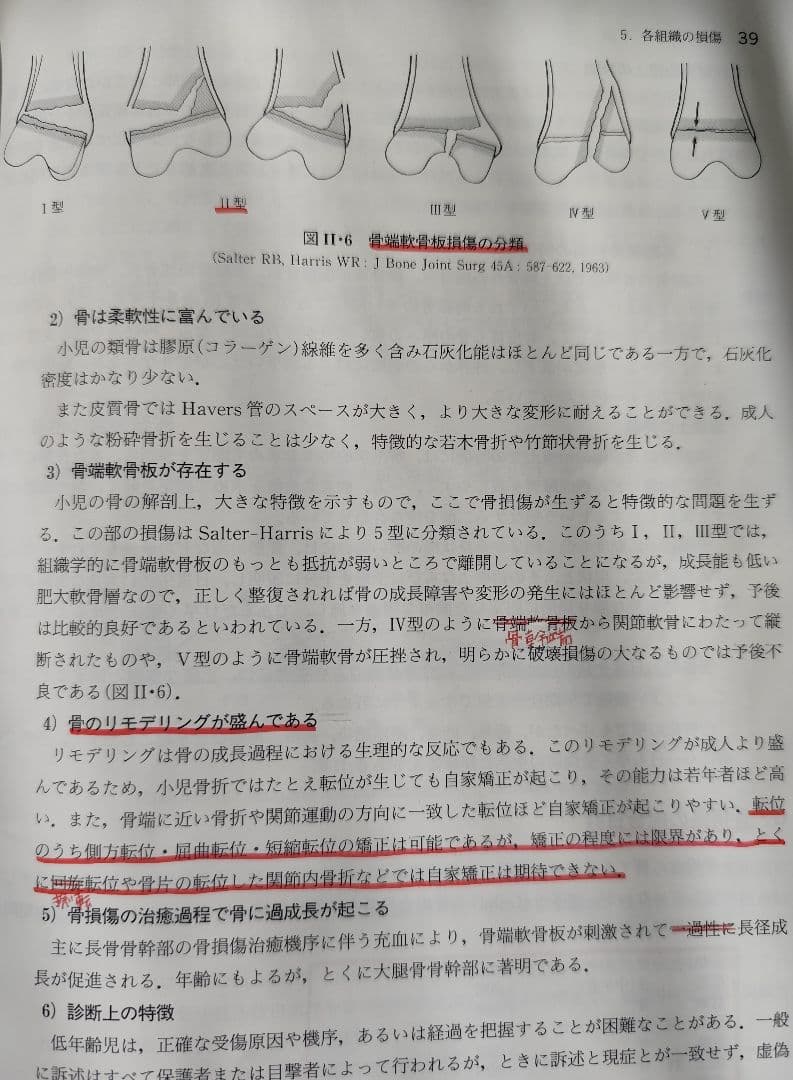 5．各組織の損傷 39
Ⅰ型 Ⅱ型 Ⅲ型 Ⅳ型 Ⅴ型
図Ⅱ･6 骨端軟骨板損傷の分類
(Salter RB, Harris WR : J Bone Joint Surg 45A : 587-622, 1963)
2) 骨は柔軟性に富んでいる
小児の類骨は膠原(コラーゲン)線維を多く含み石灰化能はほとんど同じである一方で，石灰化
密度はかなり少ない．
また皮質骨では Havers 管のスペースが大きく，より大きな変形に耐えることができる．成人
のような粉砕骨折を生じることは少なく，特徴的な若木骨折や竹節状骨折を生じる．
3) 骨端軟骨板が存在する
小児の骨の解剖上，大きな特徴を示すもので，ここで骨損傷が生ずると特徴的な問題を生ず
る．この部の損傷は Salter-Harris により 5 型に分類されている．このうちⅠ，Ⅱ，Ⅲ型では，
組織学的に骨端軟骨板のもっとも抵抗が弱いところで離開していることになるが，成長能も低い
肥大軟骨層なので，正しく整復されれば骨の成長障害や変形の発生にはほとんど影響せず，予後
は比較的良好であるといわれている．一方，Ⅳ型のように骨端 骨板から関節軟骨にわたって縦
断されたものや，Ⅴ型のように骨端軟骨が圧挫され，明らかに破壊損傷の大なるものでは予後不
良である(図Ⅱ･6)．
4) 骨のリモデリングが盛んである
リモデリングは骨の成長過程における生理的な反応でもある．このリモデリングが成人より盛
んであるため，小児骨折ではたとえ転位が生じても自家矯正が起こり，その能力は若年者ほど高
い．また，骨端に近い骨折や関節運動の方向に一致した転位ほど自家矯正が起こりやすい．転位
のうち側方転位・屈曲転位・短縮転位の矯正は可能であるが，矯正の程度には限界があり，とく
に回旋転位や骨片の転位した関節内骨折などでは自家矯正は期待できない．
5) 骨損傷の治癒過程で骨に過成長が起こる
主に長骨骨幹部の骨損傷治癒機序に伴う充血により，骨端軟骨板が刺激されて一過性に長径成
長が促進される．年齢にもよるが，とくに大腿骨骨幹部に著明である．
6) 診断上の特徴
低年齢児は，正確な受傷原因や機序，あるいは経過を把握することが困難なことがある．一般
に訴述はすべて保護者または目撃者によって行われるが，ときに訴述と現症とが一致せず，虚偽